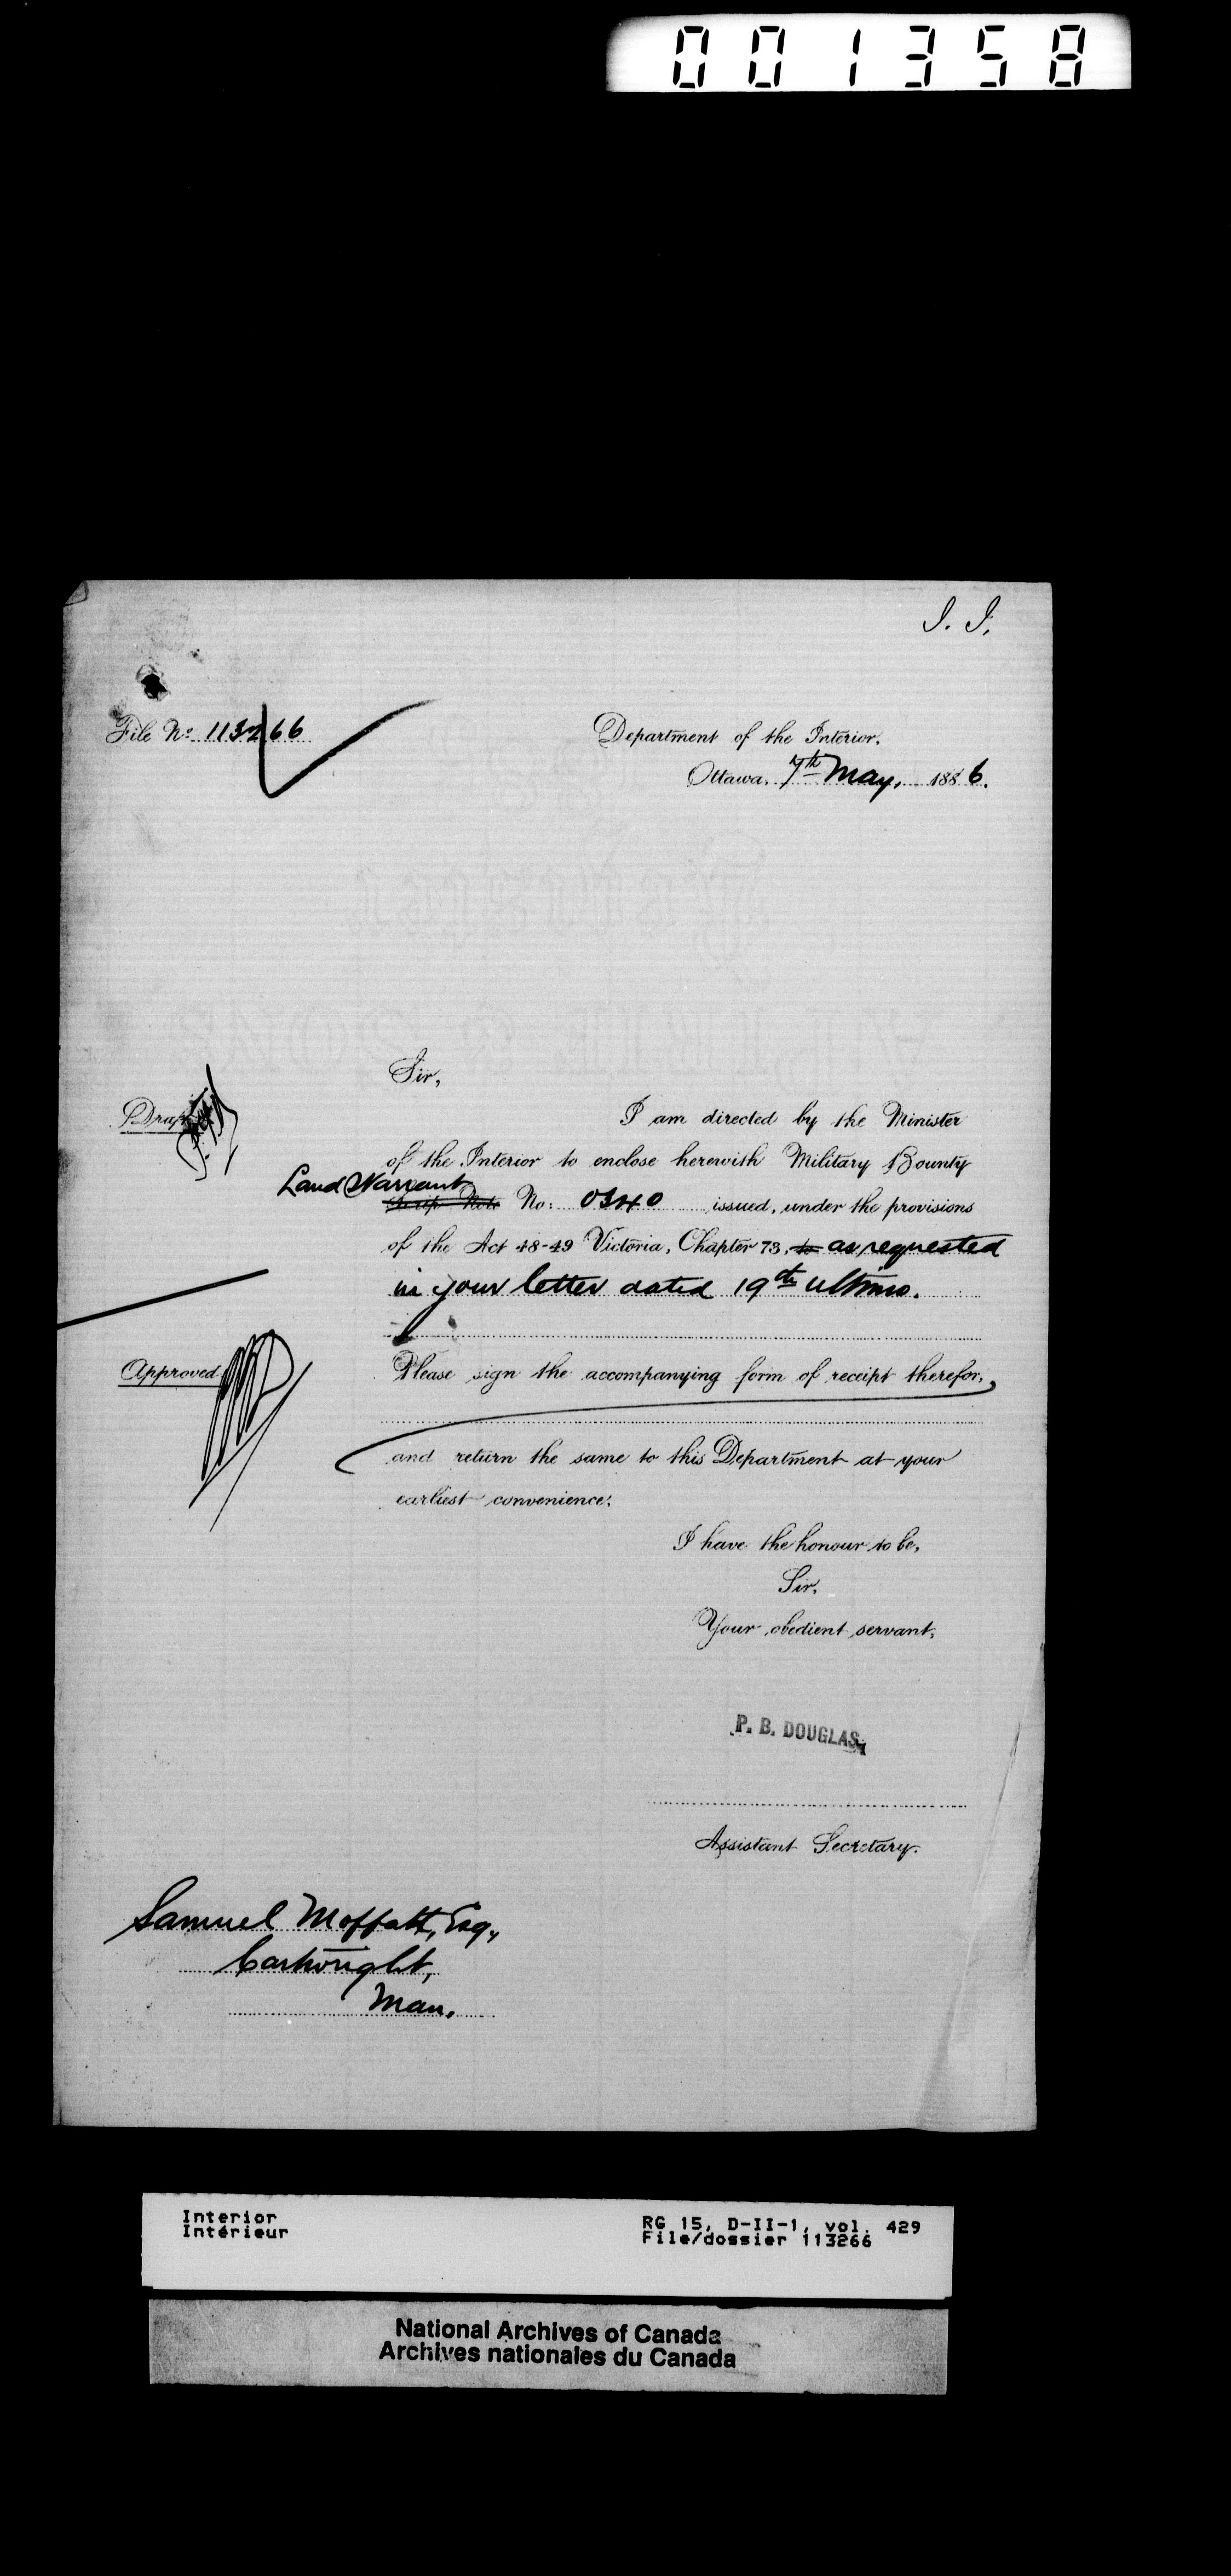 001358
I. I.
File No 113266
Department of the Interior,
Ottawa, 7th May, 1886.
Sir,
Draft
I am directed by the Minister
of the Interior to enclose herewith Military Bounty
Land Warrant
Scrip Note No: 0340 issued, under the provisions
of the Act 48-49 Victoria, Chapter 73, to as requested
in your letter dated 19th ultimo.
Approved
Please sign the accompanying form of receipt therefor,
and return the same to this Department at your
earliest convenience.
I have the honour to be,
Sir,
Your obedient servant,
P. B. DOUGLAS,
Assistant Secretary.
Samuel Moffatt, Esq.,
Cartwright,
Man.
Interior
Intérieur
RG 15, D-II-1, vol. 429
File/dossier 113266
National Archives of Canada
Archives nationales du Canada